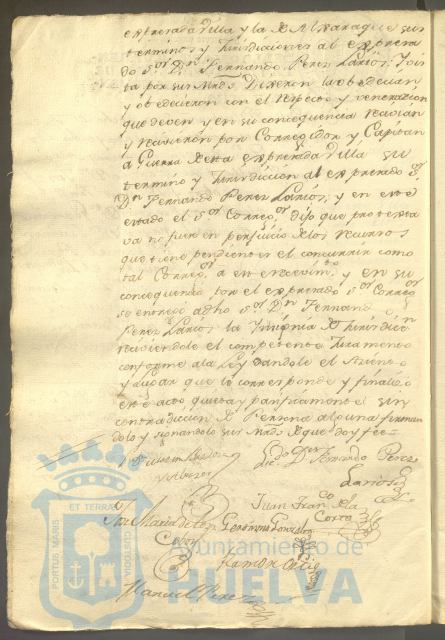 expresada Villa y la de Aljaraque sus
terminos y Jurisdiciones al expresa
do Sor. Dn. Fernando Perez Larios; Y vis
ta por sus Mrds. Dixeron la obedecian
y obedecieron con el respecto y veneracion
que deven y en su consequencia recivian
y recivieron por Corregidor y Capitan
a Guerra de esta expresada Villa su
termino y Jurisdicion al expresado Sr.
Dn. Fernando Perez Larios; y en este
estado el Sor. Corregor. dijo que protexta
va no fuere en perjuicio de los recursos
que tiene pendientes el concurrir como
tal Corregor. a este recivimto. y en su
consequencia por el expresado Sor. Corregor.
se entrego a dho Sor. Dn. Fernando
Perez Larios la Insignia de Jurisdicion
reciviendole el competente Juramento
conforme a la Ley dandole el Asiento
y Lugar que le corresponde y finalizo
este acto quieta y pacificamente sin
contradiccion de Persona alguna firman
dolo y signandolo sus Mrds. de que doy fee=
Licdo. Dn. Fernando Perez
Larios
Juan Franco. de la
Corte
Jph Maria de
Geronimo Gonzalez
Ramon
Manuel Perez
PORTUS MARIS ET TERRAE CUSTODIA
Ayuntamiento de
HUELVA